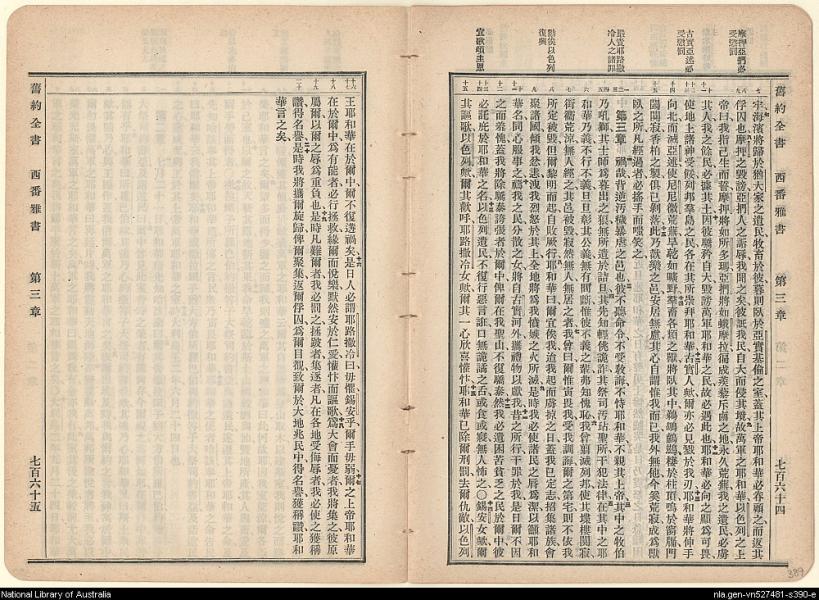 舊約全書 西番雅書 第三章 七百六十四
摩押亞捫必受懲罰
古實亞述必受懲罰
嚴責耶路撒冷人之諸罪
宜歌頌主恩
宇海濱將歸於猶大家之遺民牧畜於彼暮則臥於亞實基倫之室蓋其上帝耶和華必眷顧之而返其
俘囚也摩押之毀謗亞捫人之詬辱我聞之矣彼詆我民自大而侵其境故萬軍之耶和華以色列之上
帝曰我指己生而誓摩押將如所多瑪亞捫將如蛾摩拉爲蒺藜斥鹵之地永久荒蕪我之遺民必虜
其人我之餘民必據其土因彼驕矜自大毀謗萬軍耶和華之民故必遇此也耶和華必向之顯爲可畏
使地上諸神受餒列邦羣島之民各在其所崇拜耶和華古實人歟爾亦必見戮於我刃耶和華將伸手
向北而滅亞述使尼尼微荒蕪旱乾如曠野羣畜各類之獸將臥其中鵜鶘棲於柱頂鳴於窗牖門
閾闃寂香柏之製俱已剝落此乃歡樂之邑安居無慮其心自謂惟我而已我外無他今奚荒寂成爲獸
臥之所凡經過者必搖手而嗤笑之
第三章 禍哉背逆污穢暴虐之邑也彼不聽命令不受敎誨不恃耶和華不親其上帝其中之牧伯
乃吼獅其士師爲暮出之狼無所遺於詰旦其先知輕佻詭詐其祭司污玷聖所干犯法律在其中之耶
和華乃義不行不義旦旦彰其公義無有間斷惟彼不義之輩弗知愧恥我曾翦滅列邦使其墉樓闃寂
街衢荒涼無人經之其邑被毀寂然無人無居之者我曾曰爾惟寅畏我受我訓誨爾之第宅則不依我
所定被毀但爾黎明而起自敗厥行耶和華曰爾宜俟我迨我起而虜掠之日蓋我已定志招集諸族會
聚諸國傾我忿恚洩我烈怒於其上全地將爲我憤嫉之火所滅是時我必使諸民之脣爲潔以籲耶和
華名同心服事之禱我之民分散之女將自古實河外攜禮物以獻我昔之所行干罪於我是日爾不因
之而羞愧蓋我將除驕泰誇張者於爾中俾爾在我聖山不復驕泰然我必遺困苦貧乏之民於爾中彼
必託庇於耶和華之名以色列遺民不復行惡言誑口無詭譎之舌或食或寢無人怖之〇錫安女歟爾
其謳歌以色列歟爾其歡呼耶路撒冷女歟爾其一心欣喜懽忭耶和華已除爾刑罰去爾仇敵以色列
王耶和華在於爾中爾不復遇禍矣是日人必謂耶路撒冷曰毋懼錫安乎爾手毋弱爾之上帝耶和華
在於爾中爲有能者必行拯救緣爾而悅樂默然安於仁愛懽忭而謳歌爲大會而憂者我將集之彼原
屬爾以爾之辱爲重負也是時凡難爾者我必罰之拯跛者集逐者凡在各地受侮辱者我必使之獲稱
讚得名譽是時我將攜爾旋歸俾爾聚集返爾俘囚爲爾目覩致爾於大地兆民中得名譽獲稱讚耶和
華言之矣
舊約全書 西番雅書 第三章 七百六十五
389
National Library of Australia
nla.gen-vn527481-s390-e